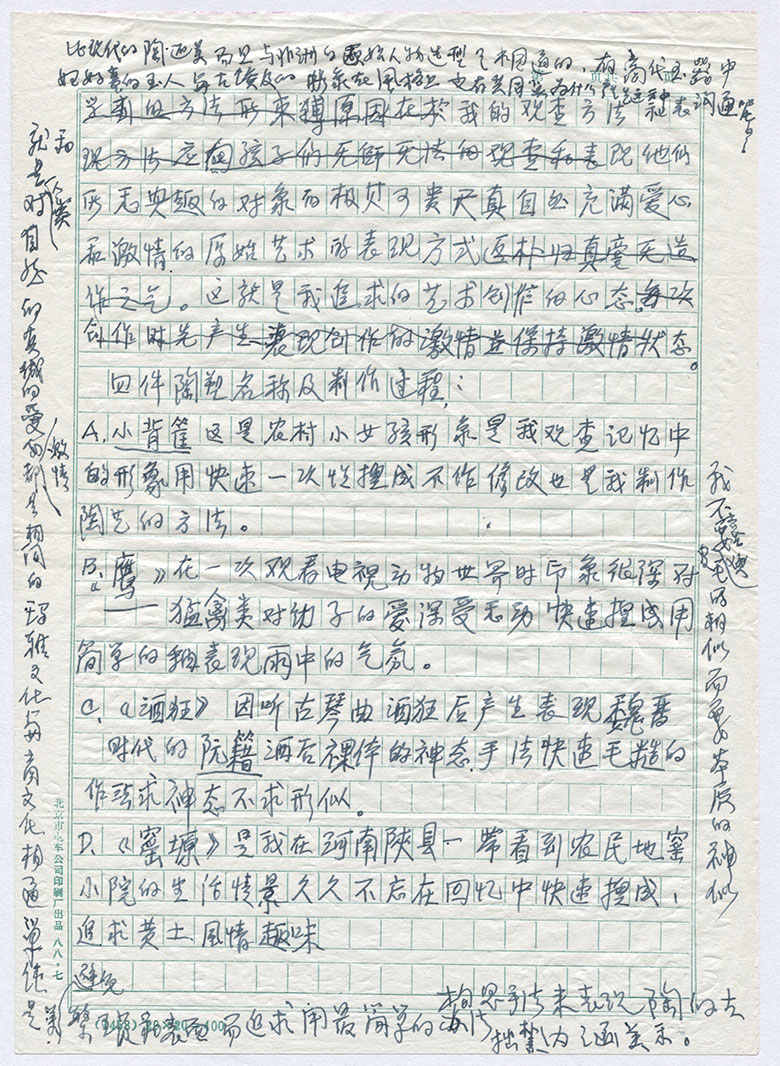 比现代的陶还美而且与非洲的原始人物造型是相通的，在商代玉器中
妇好墓的玉人与古埃及的形象在风格上也有共同处为什么
学事的方法所来源原因在于我的观查方法和表
现方法应向孩子们无师无法的观查和表现他们
所无兴趣的对象而极其可贵天真自然充满爱心
和激情的原始艺术的表现方式返朴归真毫无造
作之气。这就是我追求的艺术创作的心态每次
创作时先产生表现创作的激情并保持激情状态。
四件陶塑名称及制作过程：
A.小背筐这是农村小女孩形象是我观查记忆中
的形象用快速一次性捏成不作修改也是我制作
陶艺的方法。
B.《鹰》在一次观看电视动物世界时印象很深对
猛禽类对幼子的爱深受感动快速捏成用
简单的釉表现雨中的气氛。
C.《酒狂》因听古琴曲酒狂后产生表现魏晋
时代的阮籍酒后裸体的神态手法快速毛糙的
作法求神态不求形似。
D.《窑塬》是我在河南陕县一带看到农民地窑
小院的生活情景久久不忘在回忆中快速捏成，
追求黄土风情趣味
避免
繁琐和表面而追求用最简单的办法
构思手法来表现陶的古
拙内涵美系。
就是对自然的真诚的爱和都是相同的玛雅文化与商文化相通
和人类
激情
我不喜欢表皮的相似而要本质的神似
北京市电车公司印刷厂出品 八八·七
(0488) 20×20=400